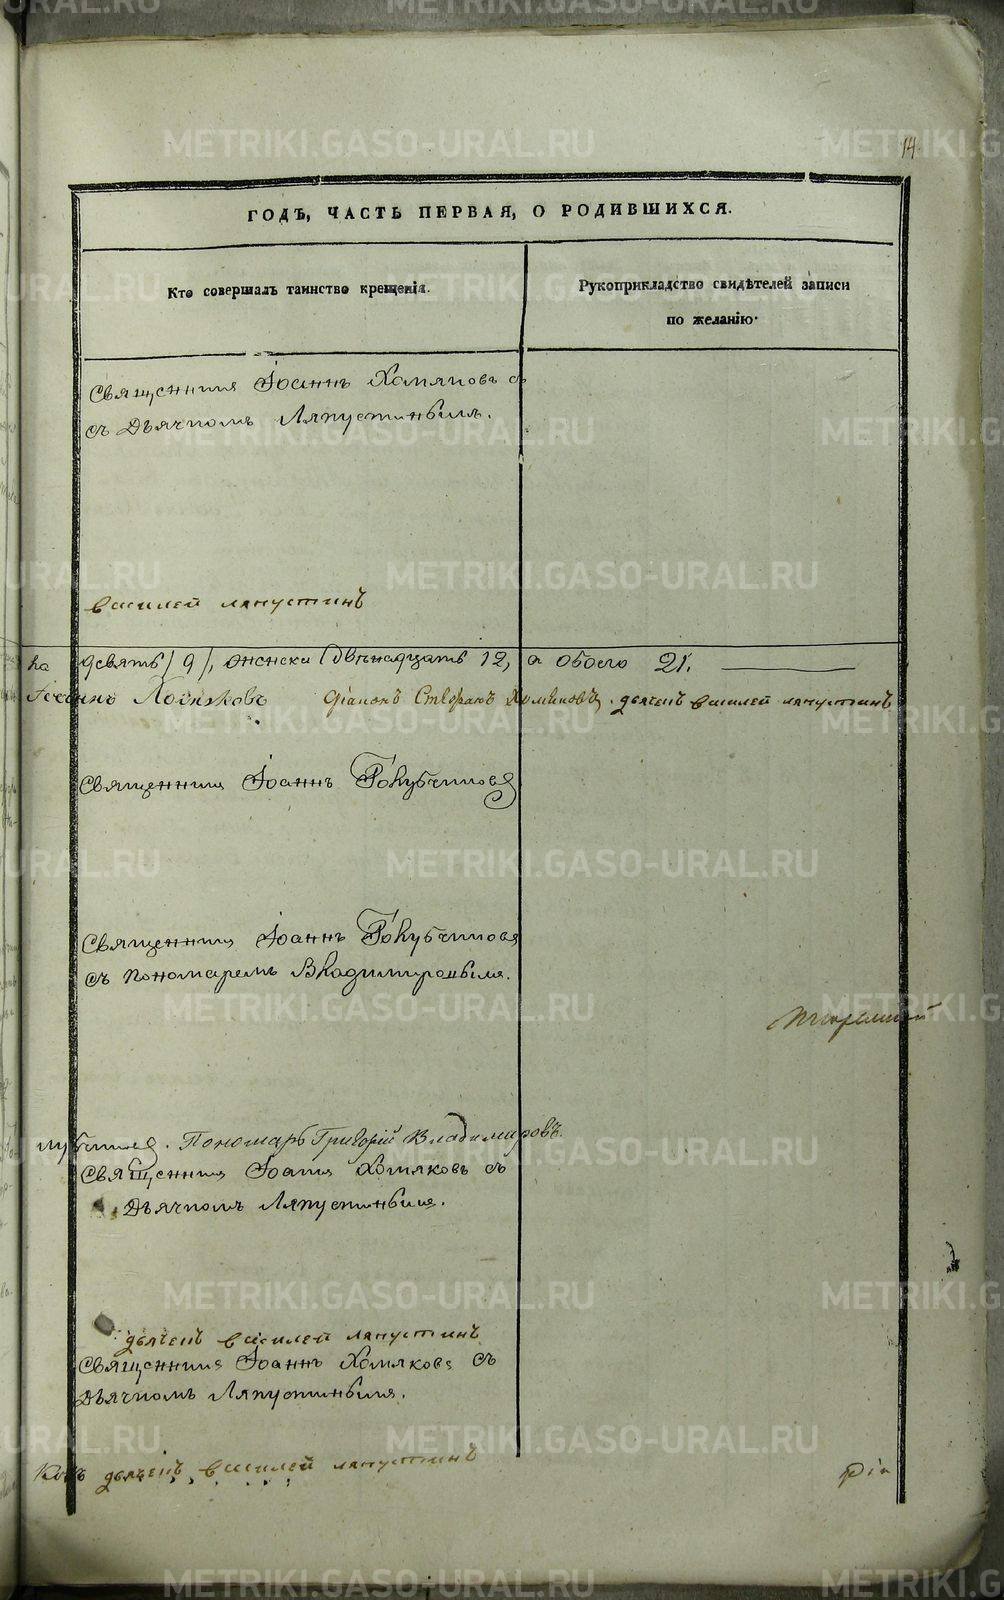 14.
ГОДЪ, ЧАСТЬ ПЕРВАЯ, О РОДИВШИХСЯ.
Кто совершалъ таинство крещенія.
Рукоприкладство свидѣтелей записи
по желанію.
Священникъ Іоаннъ Хомяковъ съ
съ Дьячкомъ Ляпустинымъ.
василей ляпустинъ
на девять /9/, женска двѣнадцать 12, а обоего 21.
Іоаннъ Хомяковъ діаконъ Стефанъ Хомяковъ. дьячекъ василей ляпустинъ
Священникъ Іоаннъ Голубчиковъ
Священникъ Іоаннъ Голубчиковъ
съ Пономаремъ Владимировымъ.
лубчиковъ. Пономарь Григорій Владимировъ.
Священникъ Іоаннъ Хомяковъ съ
Дьячкомъ Ляпустинымъ.
дьячекъ василей ляпустинъ
Священникъ Іоаннъ Хомяковъ съ
Дьячкомъ Ляпустинымъ.
дьячекъ василей ляпустинъ
діа
METRIKI.GASO-URAL.RU